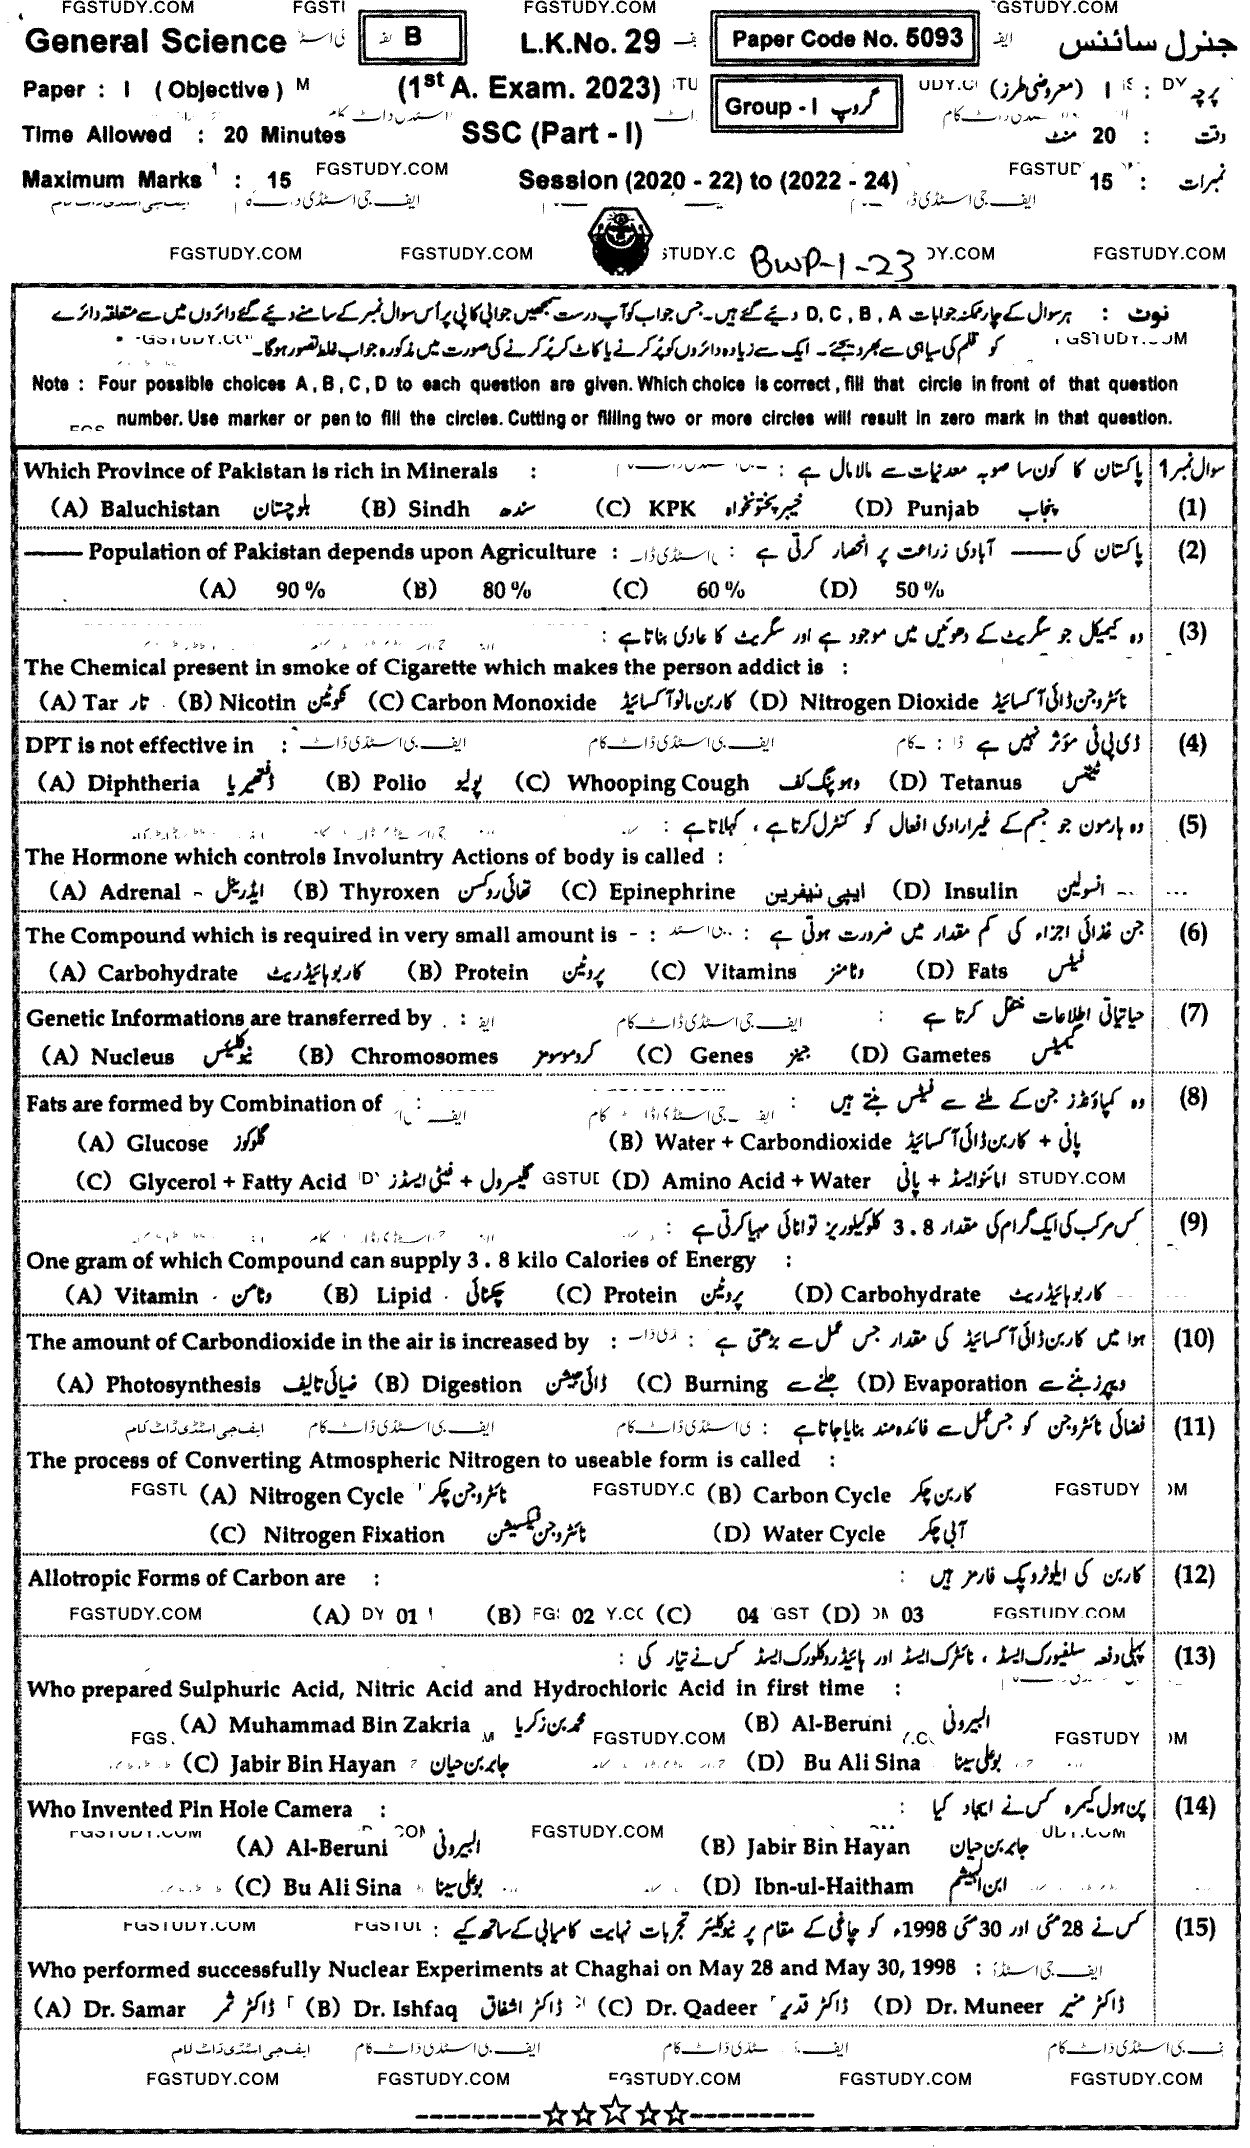 FGSTUDY.COM FGSTI FGSTUDY.COM GSTUDY.COM
General Science B L.K.No. 29 Paper Code No. 5093 جنرل سائنس
Paper : I ( Objective ) (1st A. Exam. 2023) Group - I گروپ پرچہ : I (معروضی طرز)
Time Allowed : 20 Minutes SSC (Part - I) وقت : 20 منٹ
Maximum Marks : 15 FGSTUDY.COM Session (2020 - 22) to (2022 - 24) نمبرات : 15
FGSTUDY.COM FGSTUDY.COM BWP-1-23 FGSTUDY.COM
نوٹ : ہر سوال کے چار ممکنہ جوابات D, C, B, A دیے گئے ہیں۔ جس جواب کو آپ درست سمجھیں جوابی کاپی پر اُس سوال نمبر کے سامنے دیے گئے دائروں میں سے متعلقہ دائرے
کو قلم کی سیاہی سے بھر دیجئے۔ ایک سے زیادہ دائروں کو پُر کرنے یا کاٹ کر پُر کرنے کی صورت میں مذکورہ جواب غلط تصور ہوگا۔
Note : Four possible choices A, B, C, D to each question are given. Which choice is correct, fill that circle in front of that question
number. Use marker or pen to fill the circles. Cutting or filling two or more circles will result in zero mark in that question.
Which Province of Pakistan is rich in Minerals : پاکستان کا کون سا صوبہ معدنیات سے مالا مال ہے : سوال نمبر 1
(A) Baluchistan بلوچستان (B) Sindh سندھ (C) KPK خیبر پختونخواہ (D) Punjab پنجاب (1)
—— Population of Pakistan depends upon Agriculture : پاکستان کی —— آبادی زراعت پر انحصار کرتی ہے : (2)
(A) 90 % (B) 80 % (C) 60 % (D) 50 %
وہ کیمیکل جو سگریٹ کے دھوئیں میں موجود ہے اور سگریٹ کا عادی بناتا ہے : (3)
The Chemical present in smoke of Cigarette which makes the person addict is :
(A) Tar تار (B) Nicotin نکوٹین (C) Carbon Monoxide کاربن مانو آکسائیڈ (D) Nitrogen Dioxide نائٹروجن ڈائی آکسائیڈ
DPT is not effective in : ڈی پی ٹی مؤثر نہیں ہے : (4)
(A) Diphtheria ڈفتھیریا (B) Polio پولیو (C) Whooping Cough وھوپنگ کف (D) Tetanus ٹیٹنس
وہ ہارمون جو جسم کے غیر ارادی افعال کو کنٹرل کرتا ہے ، کہلاتا ہے : (5)
The Hormone which controls Involuntry Actions of body is called :
(A) Adrenal ایڈرینل (B) Thyroxen تھائی روکسن (C) Epinephrine ایپی نیفرین (D) Insulin انسولین
The Compound which is required in very small amount is : جن غذائی اجزاء کی کم مقدار میں ضرورت ہوتی ہے : (6)
(A) Carbohydrate کاربوہائیڈریٹ (B) Protein پروٹین (C) Vitamins وٹامنز (D) Fats فیٹس
Genetic Informations are transferred by : حیاتیاتی اطلاعات منتقل کرتا ہے : (7)
(A) Nucleus نیوکلیئس (B) Chromosomes کروموسومز (C) Genes جینز (D) Gametes گیمیٹس
Fats are formed by Combination of : وہ کمپاؤنڈز جن کے ملنے سے فیٹس بنتے ہیں : (8)
(A) Glucose گلوکوز (B) Water + Carbondioxide پانی + کاربن ڈائی آکسائیڈ
(C) Glycerol + Fatty Acid گلیسرول + فیٹی ایسڈز (D) Amino Acid + Water امائنو ایسڈ + پانی STUDY.COM
کس مرکب کی ایک گرام کی مقدار 3.8 کلو کیلوریز توانائی مہیا کرتی ہے : (9)
One gram of which Compound can supply 3 . 8 kilo Calories of Energy :
(A) Vitamin وٹامن (B) Lipid چکنائی (C) Protein پروٹین (D) Carbohydrate کاربوہائیڈریٹ
The amount of Carbondioxide in the air is increased by : ہوا میں کاربن ڈائی آکسائیڈ کی مقدار جس عمل سے بڑھتی ہے : (10)
(A) Photosynthesis ضیائی تالیف (B) Digestion ڈائی جیشن (C) Burning جلنے سے (D) Evaporation ویپرز بننے سے
فضائی نائٹروجن کو جس عمل سے فائدہ مند بنایا جاتا ہے : (11)
The process of Converting Atmospheric Nitrogen to useable form is called :
(A) Nitrogen Cycle نائٹروجن چکر FGSTUDY.C (B) Carbon Cycle کاربن چکر FGSTUDY
(C) Nitrogen Fixation نائٹروجن فکسیشن (D) Water Cycle آبی چکر
Allotropic Forms of Carbon are : کاربن کی ایلوٹروپک فارمز ہیں : (12)
FGSTUDY.COM (A) 01 (B) 02 (C) 04 (D) 03 FGSTUDY.COM
پہلی دفعہ سلفیورک ایسڈ ، نائٹرک ایسڈ اور ہائیڈروکلورک ایسڈ کس نے تیار کی : (13)
Who prepared Sulphuric Acid, Nitric Acid and Hydrochloric Acid in first time :
(A) Muhammad Bin Zakria محمد بن زکریا FGSTUDY.COM (B) Al-Beruni البیرونی FGSTUDY
(C) Jabir Bin Hayan جابر بن حیان (D) Bu Ali Sina بوعلی سینا
Who Invented Pin Hole Camera : پن ہول کیمرہ کس نے ایجاد کیا : (14)
FGSTUDY.COM (A) Al-Beruni البیرونی FGSTUDY.COM (B) Jabir Bin Hayan جابر بن حیان
(C) Bu Ali Sina بوعلی سینا (D) Ibn-ul-Haitham ابن الہیثم
FGSTUDY.COM کس نے 28 مئی اور 30 مئی 1998ء کو چاغی کے مقام پر نیوکلیئر تجربات نہایت کامیابی کے ساتھ کیے : (15)
Who performed successfully Nuclear Experiments at Chaghai on May 28 and May 30, 1998 :
(A) Dr. Samar ڈاکٹر ثمر (B) Dr. Ishfaq ڈاکٹر اشفاق (C) Dr. Qadeer ڈاکٹر قدیر (D) Dr. Muneer ڈاکٹر منیر
ایف جی اسٹڈی ڈاٹ کام ایف جی اسٹڈی ڈاٹ کام
FGSTUDY.COM FGSTUDY.COM FGSTUDY.COM FGSTUDY.COM FGSTUDY.COM